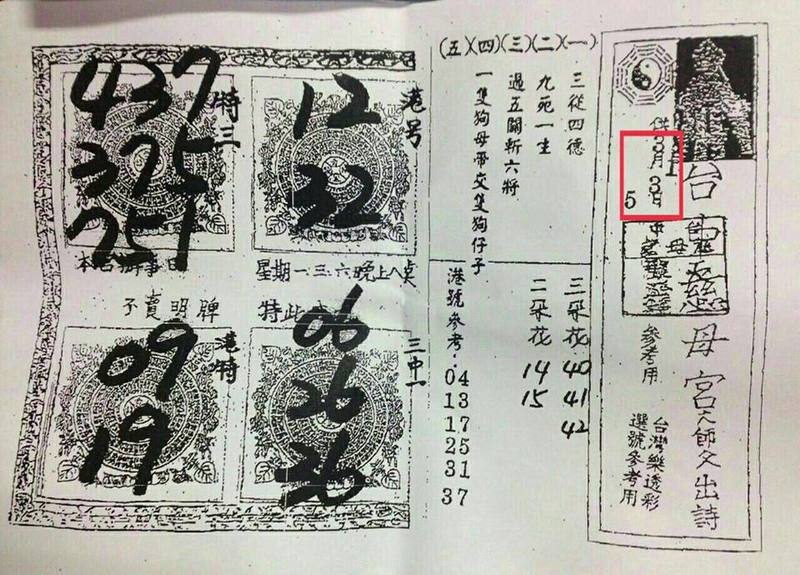 台中慈母宮大師父出詩
供3月3日
5
參考用
台灣樂透彩
選號參考用
(一)
三從四德
(二)
九死一生
(三)
過五關斬六將
(四)
一隻狗母帶六隻狗仔子
(五)
三朵花 40
41
42
二朵花 14
15
港號參考.04
13
17
25
31
37
港号
12
32
特三
437
375
251
星期一.三.六晚上八點
不賣明牌 特此
三中一
06
26
36
港特
09
19